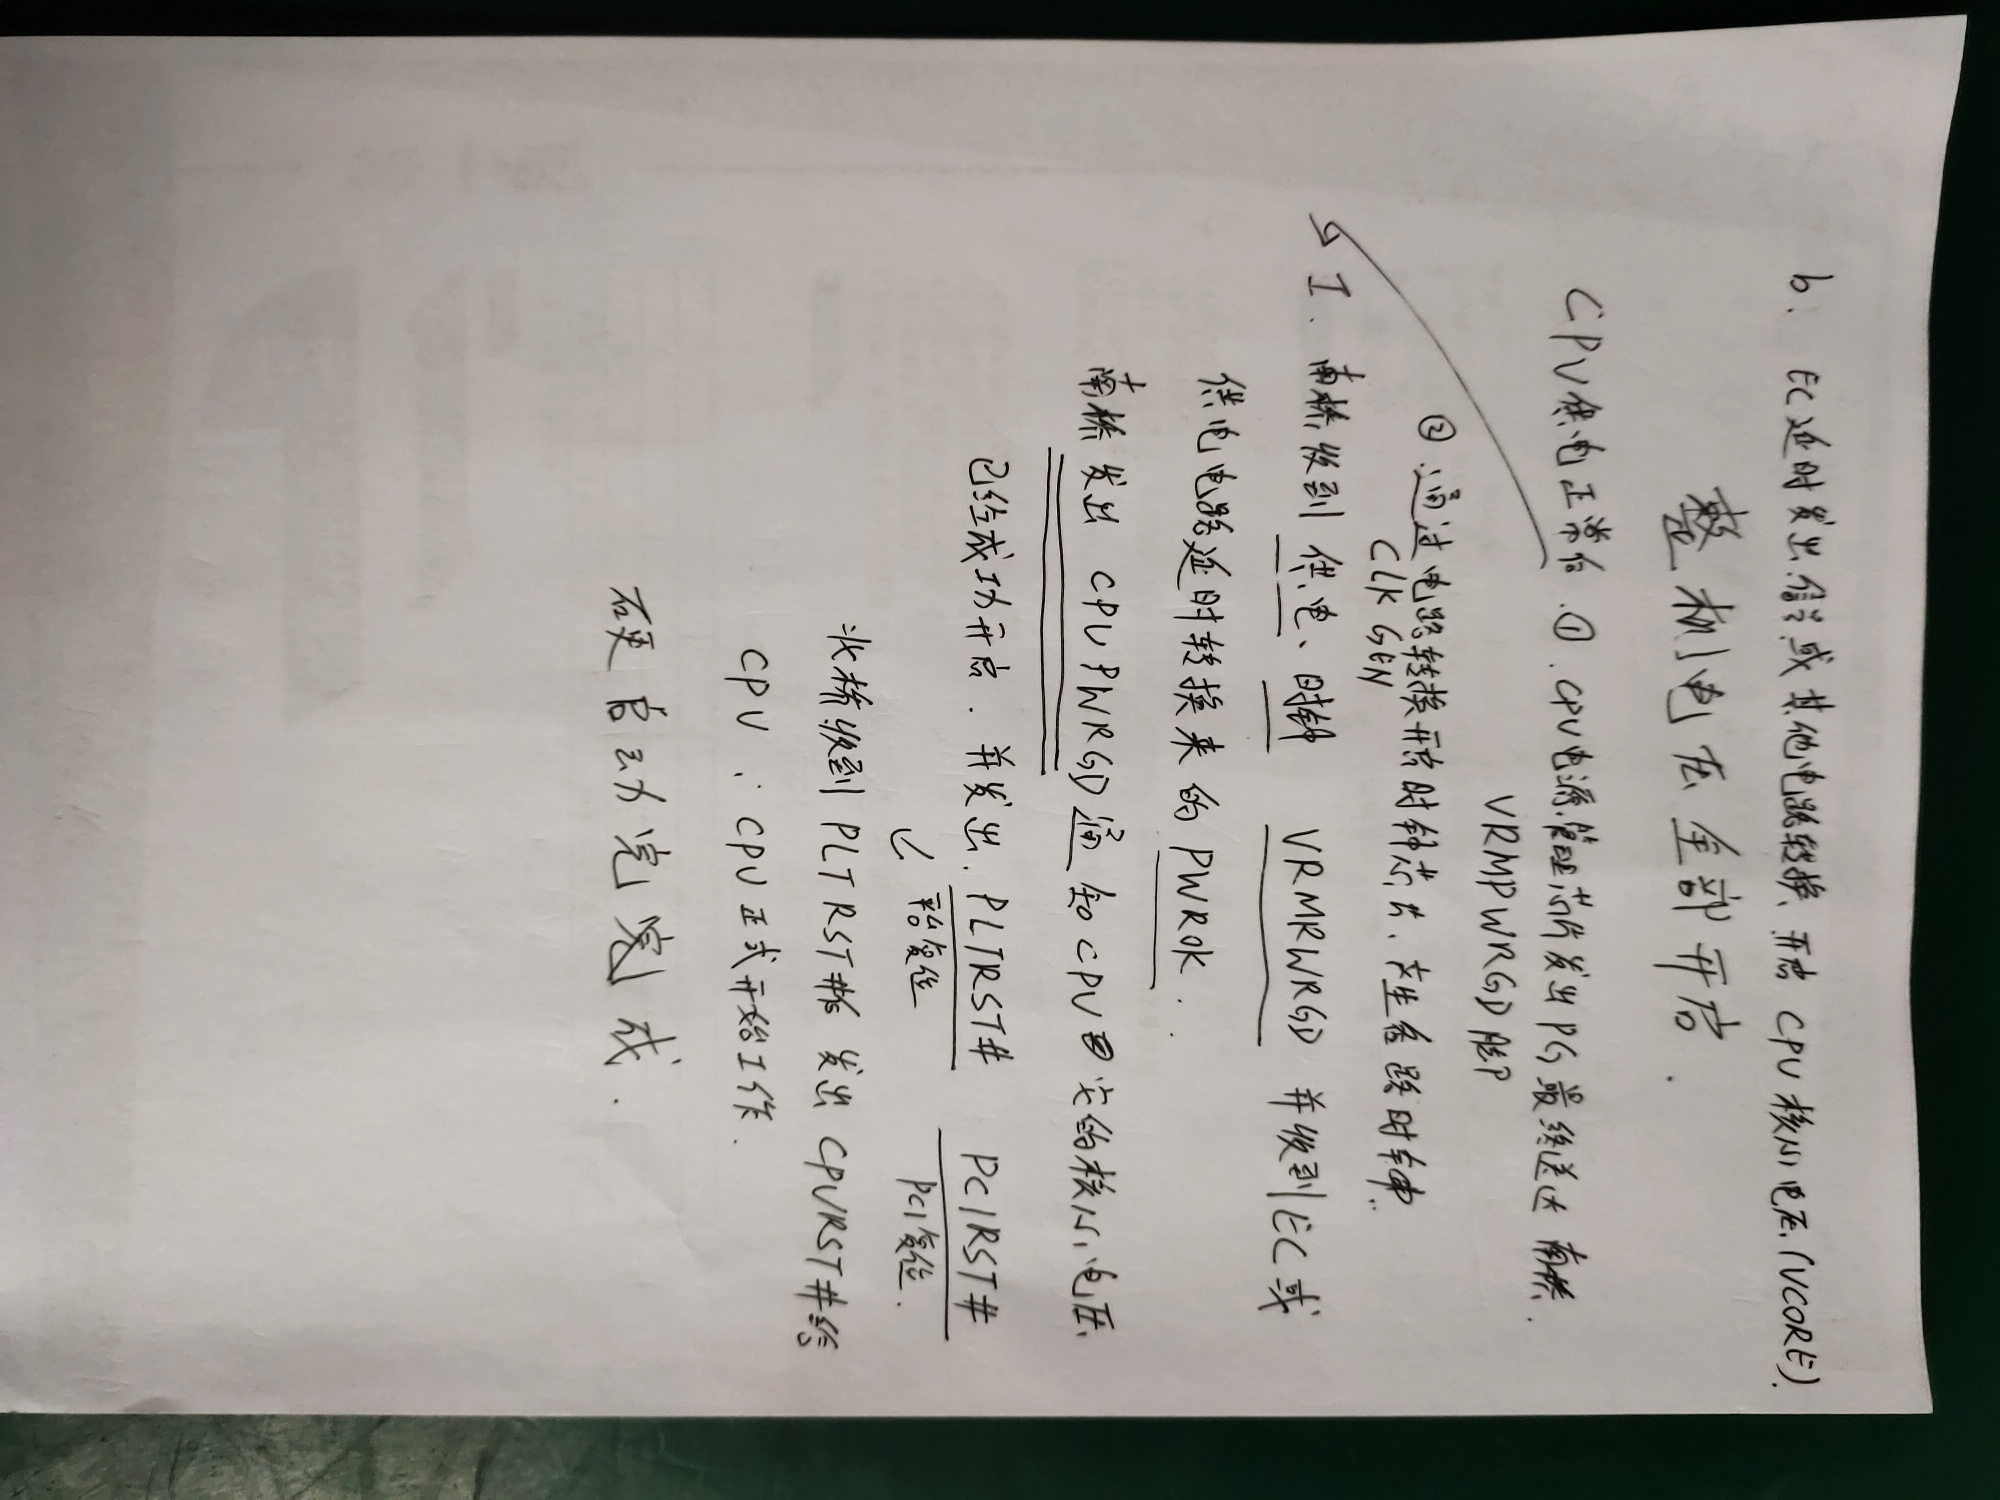 b. EC延时发出信号或其他电路转换开启 CPU 核心电压(VCORE).
整机电压全部开启.
CPU供电正常后.①.CPU电源管理芯片发出PG最终送达南桥.
VRMPWRGD脚
②.通过电路转换开启时钟芯片、产生各路时钟.
CLK GEN
I. 南桥收到供电、时钟 VRMRWRGD 并收到EC或
供电电路延时转换来的PWROK.
南桥发出 CPUPWRGD通知CPU 它的核心电压
已经成功开启. 并发出.PLTRST# PCIRST#
平台复位 PCI复位.
北桥收到PLTRST#后 发出 CPURST#给
CPU. CPU正式开始工作.
硬启动完成.